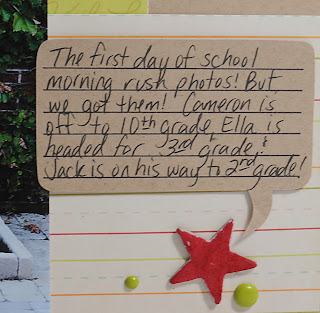 The first day of school
morning rush photos! But
we got them! Cameron is
off to 10th grade, Ella is
headed for 3rd grade &
Jack is on his way to 2nd grade!